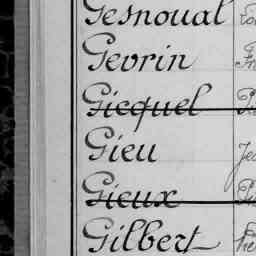 Gesnoual
Gevrin
Gicquel
Gieu
Gieux
Gilbert